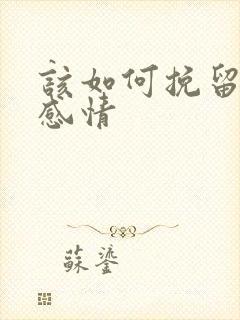 該如何挽留
感情
蘇鎏